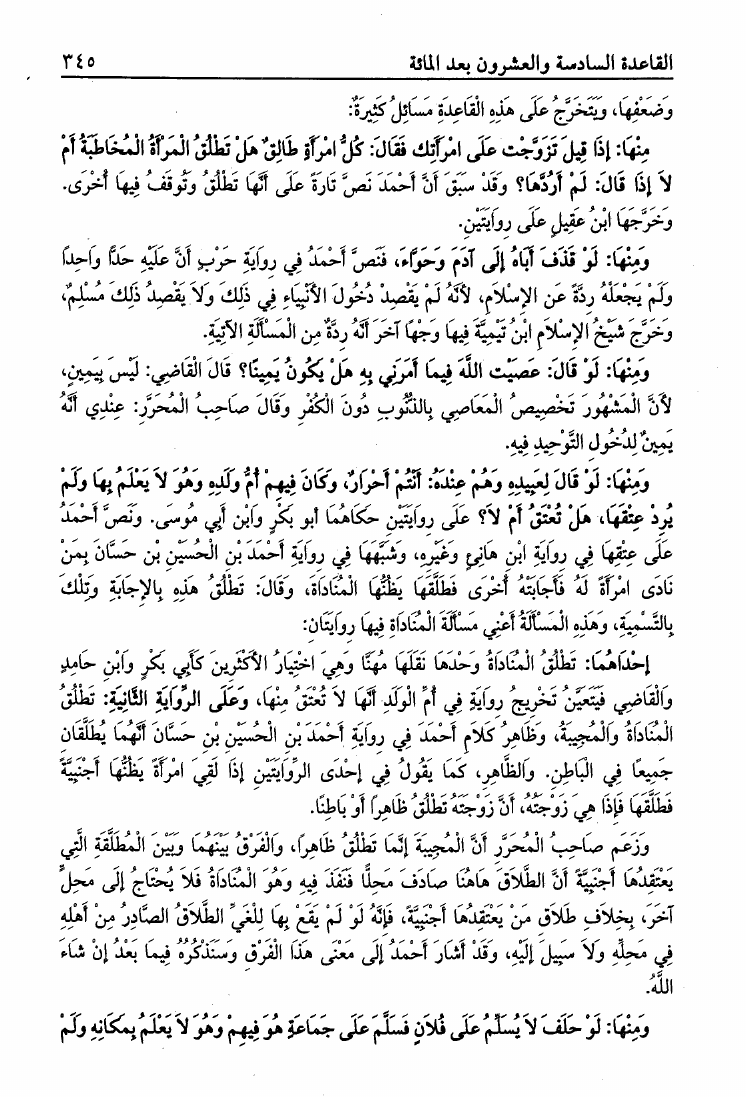 القاعدة السادسة والعشرون بعد المائة ٣٤٥
وَضَعْفِهَا، وَيَتَخَرَّجُ عَلَى هَذِهِ الْقَاعِدَةِ مَسَائِلُ كَثِيرَةٌ:
مِنْهَا: إذَا قِيلَ تَزَوَّجْت عَلَى امْرَأَتِك فَقَالَ: كُلُّ امْرَأَةٍ طَالِقٌ هَلْ تَطْلُقُ الْمَرْأَةُ الْمُخَاطَبَةُ أَمْ
لاَ إذَا قَالَ: لَمْ أَرُدَّهَا؟ وَقَدْ سَبَقَ أَنَّ أَحْمَدَ نَصَّ تَارَةً عَلَى أَنَّهَا تَطْلُقُ وَتُوقَفُ فِيهَا أُخْرَى.
وَخَرَّجَهَا ابْنُ عَقِيلٍ عَلَى رِوَايَتَيْنِ.
وَمِنْهَا: لَوْ قَذَفَ أَبَاهُ إلَى آدَمَ وَحَوَّاءَ، فَنَصَّ أَحْمَدُ فِي رِوَايَةِ حَرْبٍ أَنَّ عَلَيْهِ حَدًّا وَاحِدًا
وَلَمْ يَجْعَلْهُ رِدَّةً عَنِ الإِسْلاَمِ، لأَنَّهُ لَمْ يَقْصِدْ دُخُولَ الأَنْبِيَاءِ فِي ذَلِكَ وَلاَ يَقْصِدُ ذَلِكَ مُسْلِمٌ،
وَخَرَّجَ شَيْخُ الإِسْلاَمِ ابْنُ تَيْمِيَّةَ فِيهَا وَجْهًا آخَرَ أَنَّهُ رِدَّةٌ مِنِ الْمَسْأَلَةِ الآتِيَةِ.
وَمِنْهَا: لَوْ قَالَ: عَصَيْت اللَّهَ فِيمَا أَمَرَنِي بِهِ هَلْ يَكُونُ يَمِينًا؟ قَالَ الْقَاضِي: لَيْسَ بِيَمِينٍ،
لأَنَّ الْمَشْهُورَ تَخْصِيصُ الْمَعَاصِي بِالذُّنُوبِ دُونَ الْكُفْرِ وَقَالَ صَاحِبُ الْمُحَرَّرِ: عِنْدِي أَنَّهُ
يَمِينٌ لِدُخُولِ التَّوْحِيدِ فِيهِ.
وَمِنْهَا: لَوْ قَالَ لِعَبِيدِهِ وَهُمْ عِنْدَهُ: أَنْتُمْ أَحْرَارٌ، وَكَانَ فِيهِمْ أُمُّ وَلَدِهِ وَهُوَ لاَ يَعْلَمُ بِهَا وَلَمْ
يُرِدْ عِتْقَهَا، هَلْ تُعْتَقُ أَمْ لاَ؟ عَلَى رِوَايَتَيْنِ حَكَاهُمَا أَبُو بَكْرٍ وَابْنِ أَبِي مُوسَى. وَنَصَّ أَحْمَدُ
عَلَى عِتْقِهَا فِي رِوَايَةِ ابْنِ هَانِئٍ وَغَيْرِهِ، وَشَبَّهَهَا فِي رِوَايَةِ أَحْمَدَ بْنِ الْحُسَيْنِ بْنِ حَسَّانَ بِمَنْ
نَادَى امْرَأَةً لَهُ فَأَجَابَتْهُ أُخْرَى فَطَلَّقَهَا يَظُنُّهَا الْمُنَادَاةَ، وَقَالَ: تَطْلُقُ هَذِهِ بِالإِجَابَةِ وَتِلْكَ
بِالتَّسْمِيَةِ، وَهَذِهِ الْمَسْأَلَةُ أَعْنِي مَسْأَلَةَ الْمُنَادَاةِ فِيهَا رِوَايَتَانِ:
إحْدَاهُمَا: تَطْلُقُ الْمُنَادَاةُ وَحْدَهَا نَقَلَهَا مُهَنَّا وَهِيَ اخْتِيَارُ الأَكْثَرِينَ كَأَبِي بَكْرٍ وَابْنِ حَامِدٍ
وَالْقَاضِي فَيَتَعَيَّنُ تَخْرِيجُ رِوَايَةٍ فِي أُمِّ الْوَلَدِ أَنَّهَا لاَ تُعْتَقُ مِنْهَا، وَعَلَى الرِّوَايَةِ الثَّانِيَةِ: تَطْلُقُ
الْمُنَادَاةُ وَالْمُجِيبَةُ، وَظَاهِرُ كَلاَمِ أَحْمَدَ فِي رِوَايَةِ أَحْمَدَ بْنِ الْحُسَيْنِ بْنِ حَسَّانَ أَنَّهُمَا يُطَلَّقَانِ
جَمِيعًا فِي الْبَاطِنِ. وَالظَّاهِرِ، كَمَا يَقُولُ فِي إحْدَى الرِّوَايَتَيْنِ إذَا لَقِيَ امْرَأَةً يَظُنُّهَا أَجْنَبِيَّةً
فَطَلَّقَهَا فَإِذَا هِيَ زَوْجَتُهُ، أَنَّ زَوْجَتَهُ تَطْلُقُ ظَاهِرًا أَوْ بَاطِنًا.
وَزَعَمَ صَاحِبُ الْمُحَرَّرِ أَنَّ الْمُجِيبَةَ إنَّمَا تَطْلُقُ ظَاهِرًا، وَالْفَرْقُ بَيْنَهُمَا وَبَيْنَ الْمُطَلَّقَةِ الَّتِي
يَعْتَقِدُهَا أَجْنَبِيَّةً أَنَّ الطَّلاَقَ هَاهُنَا صَادَفَ مَحِلًّا فَنَفَذَ فِيهِ وَهُوَ الْمُنَادَاةُ فَلاَ يُحْتَاجُ إلَى مَحِلٍّ
آخَرَ، بِخِلاَفِ طَلاَقِ مَنْ يَعْتَقِدُهَا أَجْنَبِيَّةً، فَإِنَّهُ لَوْ لَمْ يَقَعْ بِهَا لِلُغِيِّ الطَّلاَقُ الصَّادِرُ مِنْ أَهْلِهِ
فِي مَحِلِّهِ وَلاَ سَبِيلَ إلَيْهِ، وَقَدْ أَشَارَ أَحْمَدُ إلَى مَعْنَى هَذَا الْفَرْقِ وَسَنَذْكُرُهُ فِيمَا بَعْدُ إنْ شَاءَ
اللَّهُ.
وَمِنْهَا: لَوْ حَلَفَ لاَ يُسَلِّمُ عَلَى فُلاَنٍ فَسَلَّمَ عَلَى جَمَاعَةٍ هُوَ فِيهِمْ وَهُوَ لاَ يَعْلَمُ بِمَكَانِهِ وَلَمْ